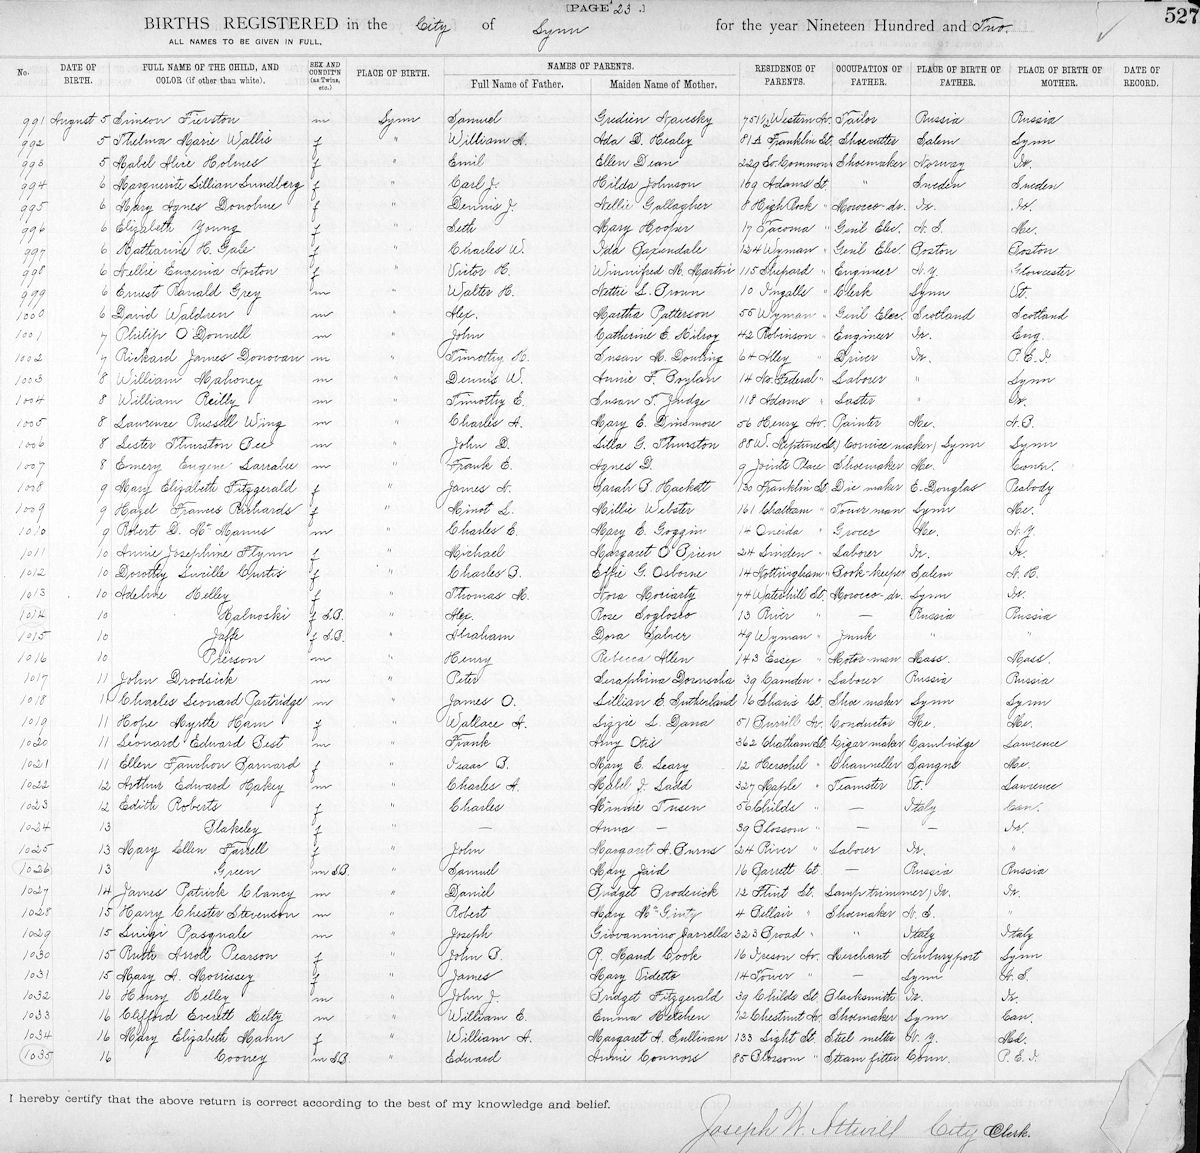 [PAGE 23.]
527
BIRTHS REGISTERED in the City of Lynn for the year Nineteen Hundred and Two.
ALL NAMES TO BE GIVEN IN FULL.
No. DATE OF BIRTH. FULL NAME OF THE CHILD, AND COLOR (if other than white). SEX AND CONDIT'N (as Twins, etc.) PLACE OF BIRTH. NAMES OF PARENTS. Full Name of Father. Maiden Name of Mother. RESIDENCE OF PARENTS. OCCUPATION OF FATHER. PLACE OF BIRTH OF FATHER. PLACE OF BIRTH OF MOTHER. DATE OF RECORD.
991 August 5 Simeon Fierston m Lynn Samuel 751½ Western Av. Tailor Russia Russia
992 5 Thelma Marie Wallis f " William A. Ada D. Healey 81A Franklin St. Shoecutter Salem Lynn
993 5 Mabel Alice Holmes f " Emil Ellen Dean 229 Eo. Common Shoemaker Norway Ir.
994 6 Marguerite Lillian Lundberg f " Carl J. Hilda Johnson 169 Adams St. " Sweden Sweden
995 6 Mary Agnes Donohue f " Dennis J. Nellie Gallagher 8 High Rock " Morocco dr. Ir. Ir.
996 6 Elizabeth Young f " Seth Mary Hooper 17 Tacoma " Genl Elec. N.S. Me.
997 6 Katharine H. Gale f " Charles W. Ida Baxendale 124 Wyman " Genl Elec. Boston Boston
998 6 Nellie Eugenia Norton f " Victor H. Winnifred M. Martin 115 Shepard " Engineer N.Y. Gloucester
999 6 Ernest Ranald Grey m " Walter H. Nettie L. Brown 10 Ingalls " Clerk Lynn Vt.
1000 6 David Waldren m " Alex. Martha Patterson 55 Wyman " Genl Elec. Scotland Scotland
1001 7 Philip O'Donnell m " John Catherine E. Kilroy 42 Robinson " Engineer Ir. Eng.
1002 7 Rickard James Donovan m " Timothy H. Susan M. Dowling 64 Alley " Driver Ir. P.E.I.
1003 8 William Mahoney m " Dennis W. Annie F. Boylan 14 No. Federal " Laborer " Lynn
1004 8 William Reilly m " Timothy E. Susan T. Judge 118 Adams " Laster " Ir.
1005 8 Lawrence Russell Wing m " Charles A. Mary E. Dinsmore 56 Henry Av. Painter Me. N.B.
1006 8 Lester Thurston Bee m " John D. Lilla G. Thurston 88 W. Neptune St. Cornice maker Lynn Lynn
1007 8 Emery Eugene Larrabee m " Frank E. Agnes D. 9 Joints Place Shoemaker Me. Conn.
1008 9 Mary Elizabeth Fitzgerald f " James N. Sarah B. Hackett 130 Franklin St. Die maker E. Douglas Peabody
1009 9 Hazel Francis Richards f " Minot L. Millie Webster 161 Chatham " Tower man Lynn Me.
1010 9 Robert D. McManus m " Charles E. Mary E. Goggin 14 Oneida " Grocer Me. N.Y.
1011 10 Annie Josephine Flynn f " Michael Margaret O'Brien 24 Linden " Laborer Ir. Ir.
1012 10 Dorothy Lurille Curtis f " Charles B. Effie G. Osborne 14 Nottingham " Book-keeper Salem N.H.
1013 10 Adeline Kelley f " Thomas M. Nora Moriarty 74 Waterhill St. Morocco dr. Lynn Ir.
1014 10 Kalnoski f S.B. " Alex. Rose 13 River " — Russia Russia
1015 10 Jaffe f S.B. " Abraham Dora Salver 49 Wyman " Junk " "
1016 10 Pierson m " Henry Rebecca Allen 143 Essex " Motor man Mass. Mass.
1017 11 John Drodsick m " Peter Seraphina 39 Camden " Laborer Russia Russia
1018 11 Charles Leonard Partridge m " James O. Lillian E. Sutherland 16 Ct. Shoe maker Lynn Lynn
1019 11 Hope Myrtle Ham f " Wallace A. Lizzie L. Dana 51 Burrill Av. Conductor Me. Me.
1020 11 Leonard Edward Best m " Frank Amy Otis 362 Chatham St. Cigar maker Cambridge Lawrence
1021 11 Ellen Fanchon Barnard f " Isaac B. Mary E. Leary 12 Herschel " Channeller Saugus Me.
1022 12 Arthur Edward Hakey m " Charles A. Mabel J. Ladd 327 Maple " Teamster Vt. Lawrence
1023 12 Edith Roberts f " Charles Minnie Tusen 56 Childs " — Italy Can.
1024 13 Blakeley f " — Anna — 39 Blossom " — — Ir.
1025 13 Mary Ellen Farrell f " John Margaret A. Burns 24 River " Laborer Ir. "
1026 13 Green m S.B. " Samuel Mary Jaid 16 Barrett Ct. — Russia Russia
1027 14 James Patrick Clancy m " Daniel Bridget Broderick 12 Flint St. Lamp trimmer Ir. Ir.
1028 15 Harry Chester Stevenson m " Robert Mary McGinty 4 Bellair " Shoemaker N.S. "
1029 15 Luigi Pasquale m " Joseph Giovannino Jarrella 323 Broad " " Italy Italy
1030 15 Ruth Atroll Pearson f " John B. R. Maud Cook 16 Ireson Av. Merchant Newburyport Lynn
1031 15 Mary A. Morrissey f " James Mary Vidette 14 Tower " — Lynn N.S.
1032 16 Henry Kelley m " John J. Bridget Fitzgerald 39 Childs St. Blacksmith Ir. Ir.
1033 16 Clifford Everett Kelty m " William E. Emma Metchen 72 Chestnut Av. Shoemaker Lynn Can.
1034 16 Mary Elizabeth Mahn f " William A. Margaret A. Sullivan 133 Light St. Steel melter N.Y. Md.
1035 16 Cooney m S.B. " Edward Annie Connors 85 Blossom " Steam fitter Conn. P.E.I.
I hereby certify that the above return is correct according to the best of my knowledge and belief.
Joseph W. Attwill City Clerk.